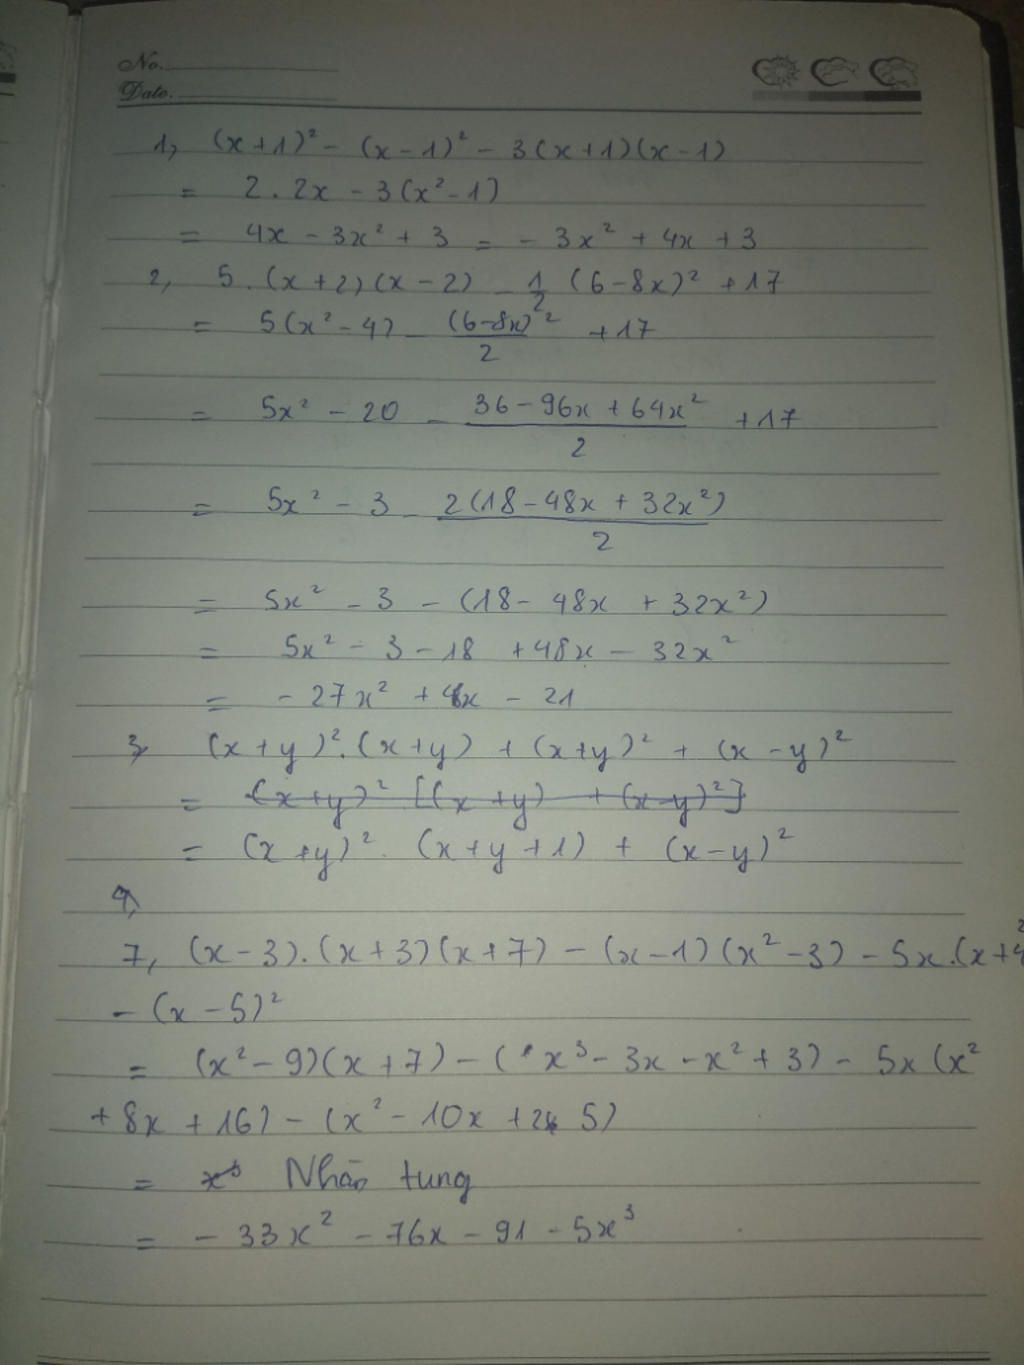 No.
Date.
1, (x+1)² - (x-1)² - 3(x+1)(x-1)
= 2.2x - 3(x²-1)
= 4x - 3x² + 3 = - 3x² + 4x + 3
2, 5.(x+2)(x-2) - 1/2 (6-8x)² + 17
= 5(x²-4) - (6-8x)²/2 + 17
= 5x² - 20 - (36-96x+64x²)/2 + 17
= 5x² - 3 - 2(18-48x+32x²)/2
= 5x² - 3 - (18-48x + 32x²)
= 5x² - 3 - 18 + 48x - 32x²
= - 27x² + 48x - 21
3, (x+y)².(x+y) + (x+y)² + (x-y)²
= (x+y)² [(x+y) + (x-y)²]
= (x+y)². (x+y+1) + (x-y)²
7, (x-3).(x+3)(x+7) - (x-1)(x²-3) - 5x.(x+4)²
- (x-5)²
= (x²-9)(x+7) - (x³-3x-x²+3) - 5x(x²
+8x+16) - (x²-10x+25)
= Nhân tung
= - 33x² - 76x - 91 - 5x³